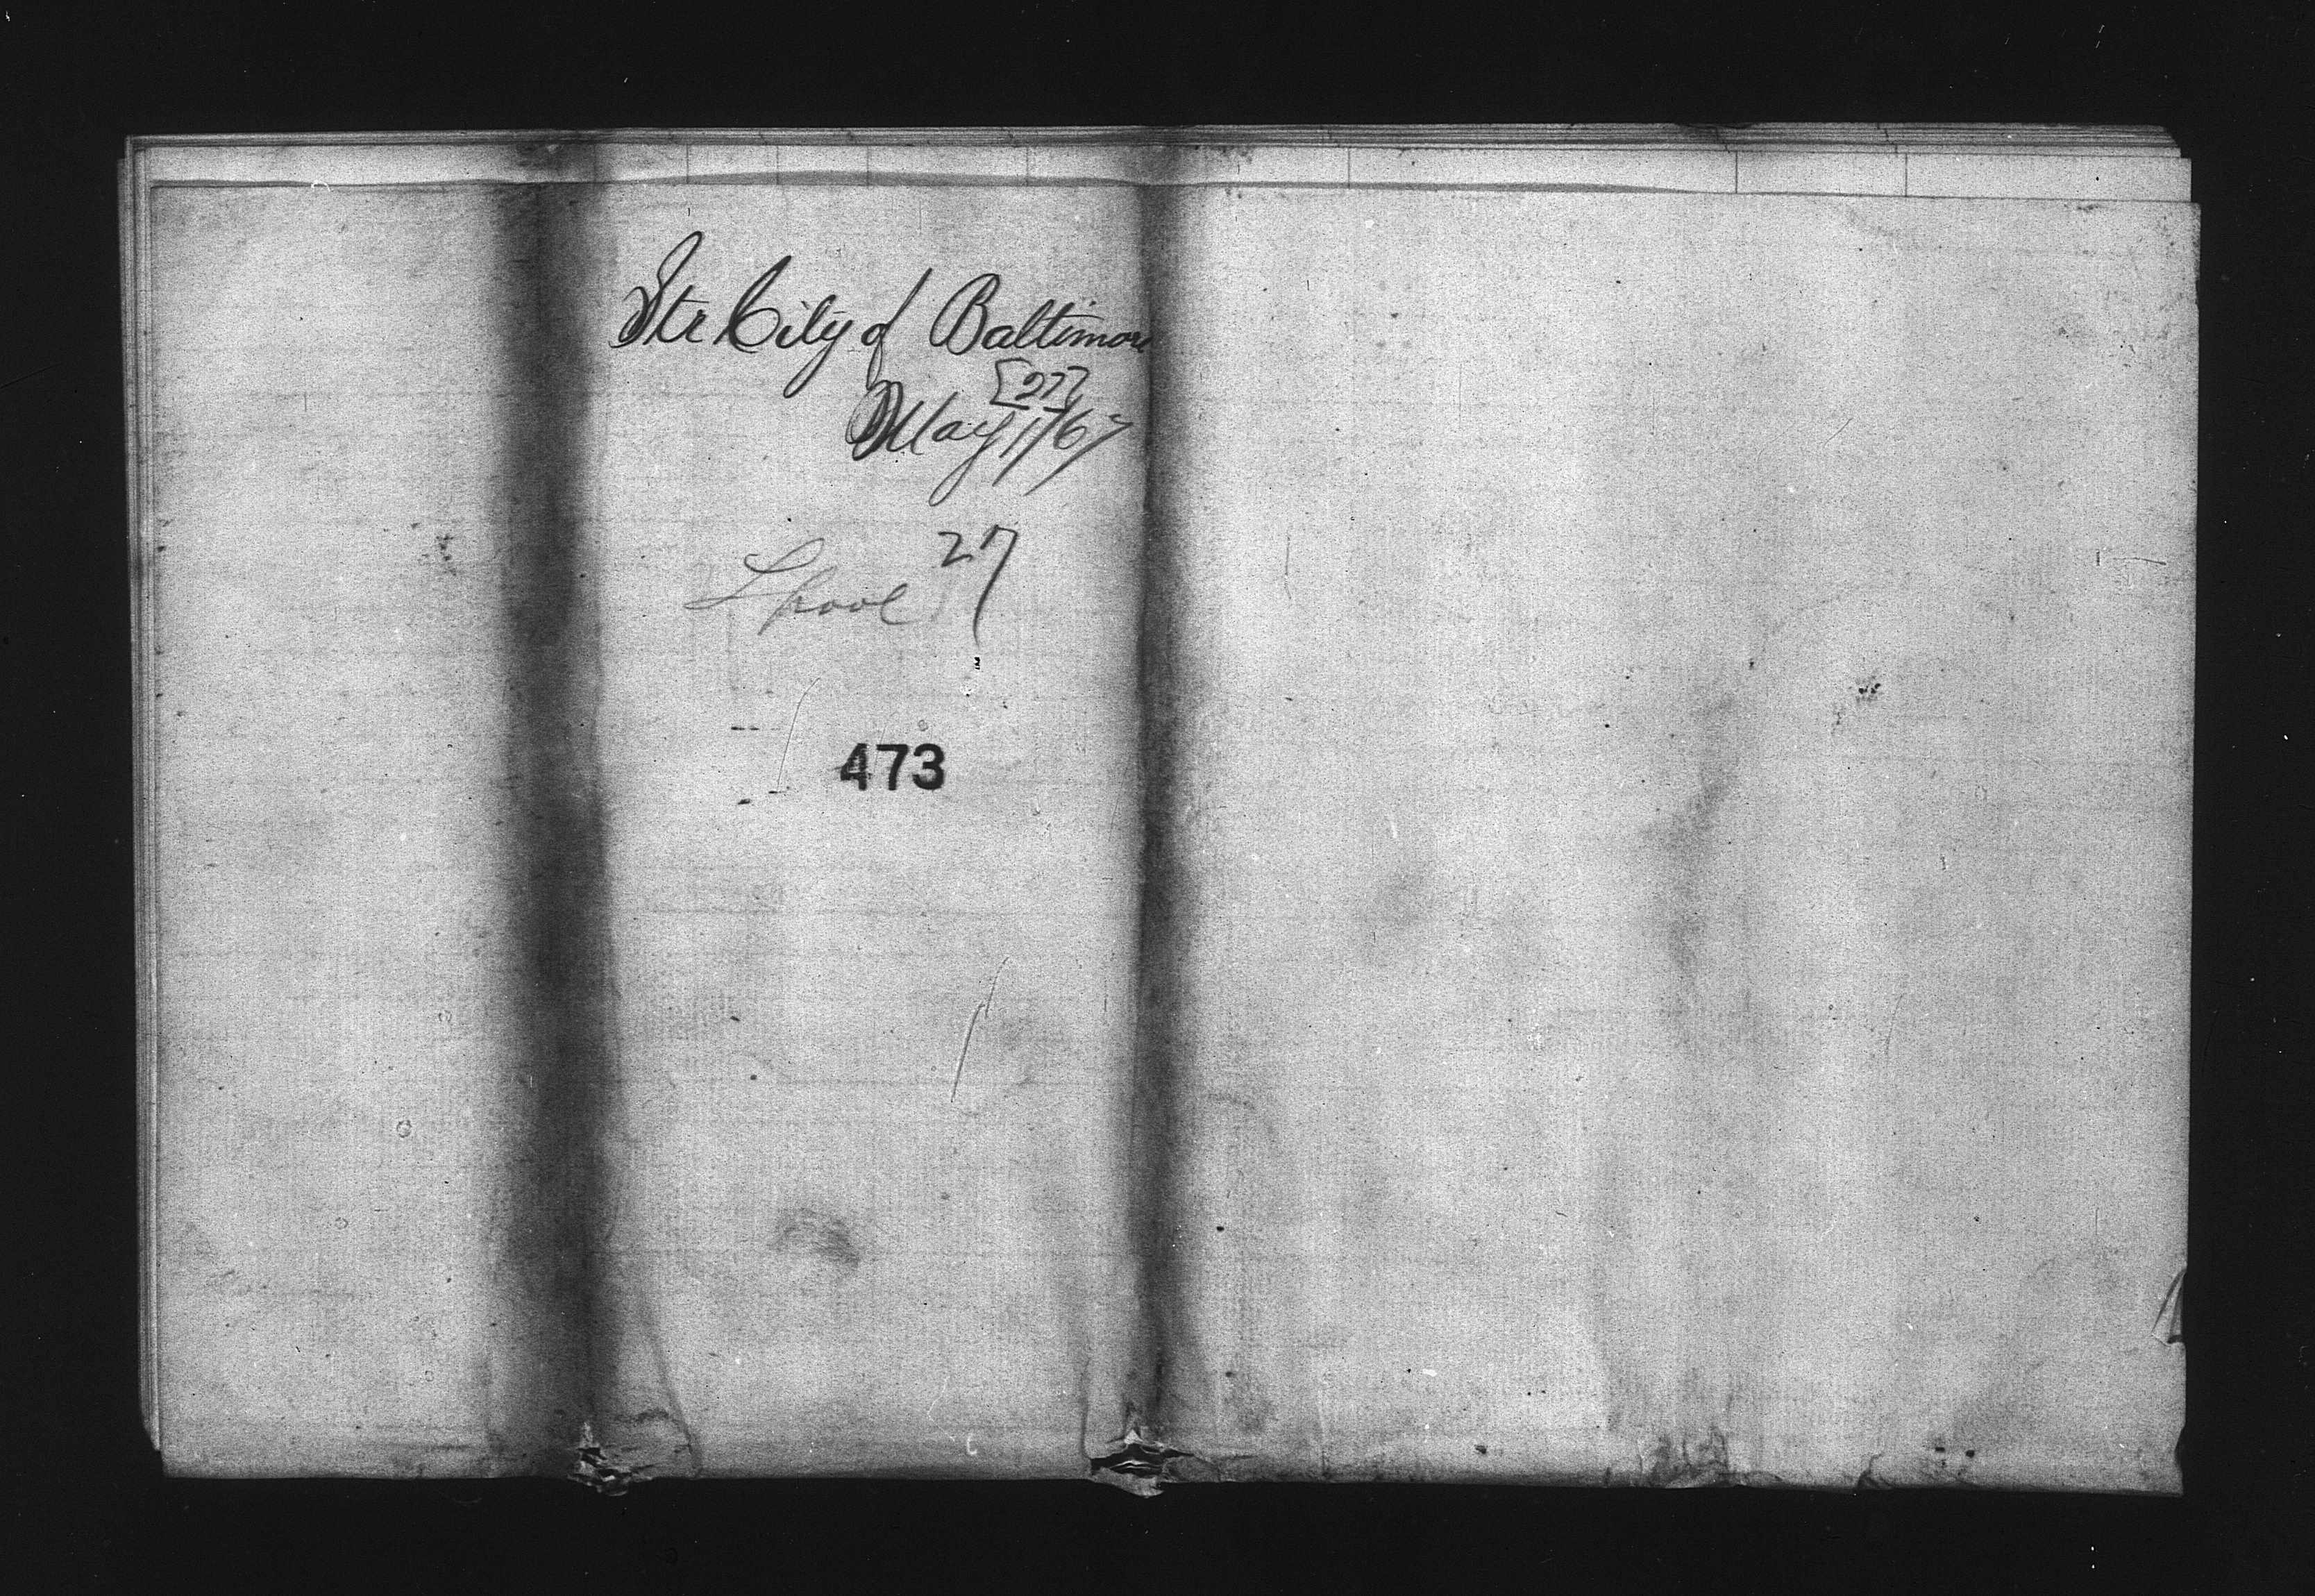 Str City of Baltimore
[27]
May 1/67
Lpool 27
473